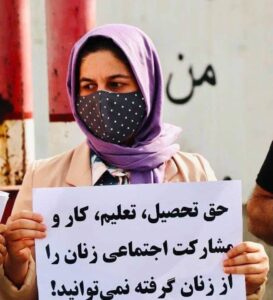 من
حق تحصیل، تعلیم، کار و
مشارکت اجتماعی زنان را
از زنان گرفته نمی‌توانید!